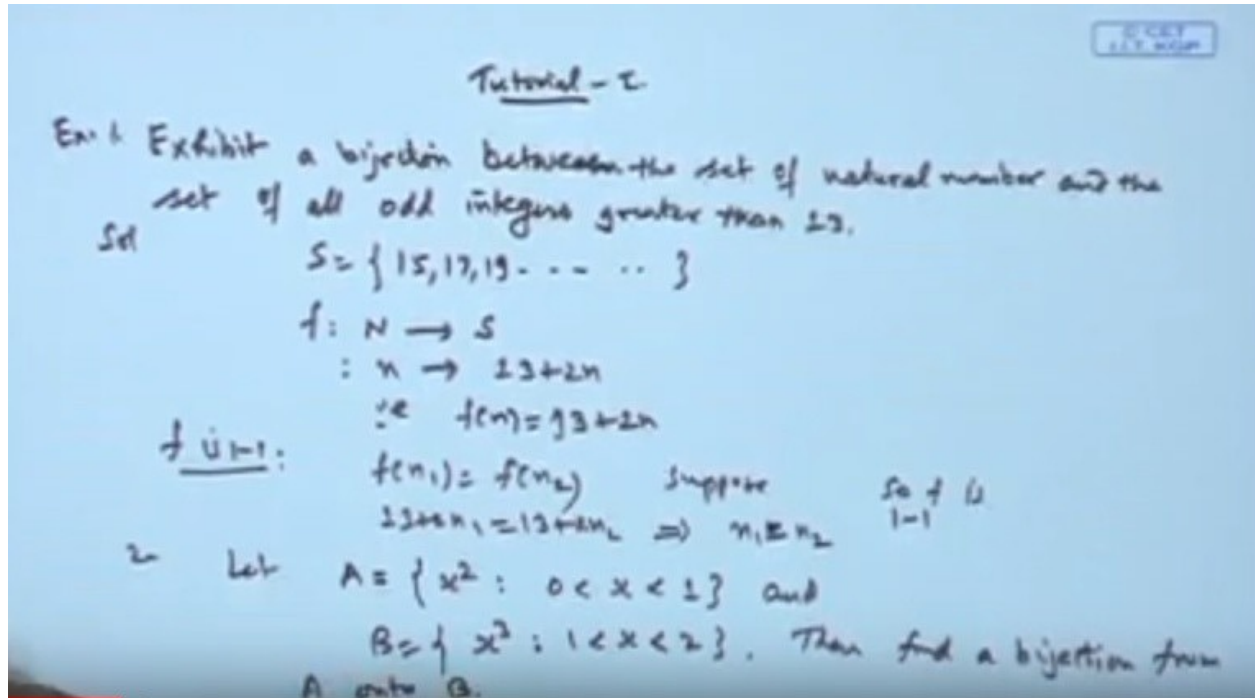 © CET
I.I.T. KGP
Tutorial - I
Ex. 1. Exhibit a bijection between the set of natural number and the
set of all odd integers greater than 13.
Sol
S = { 15, 17, 19 - - - .. }
f : N → S
: n → 13+2n
i.e f(n) = 13+2n
f is 1-1:
f(n₁) = f(n₂) suppose So f is
13+2n₁ = 13+2n₂ ⇒ n₁ = n₂ 1-1
2 Let A = { x² : 0 < x < 1 } and
B = { x³ : 1 < x < 2 }. Then find a bijection from
A onto B.